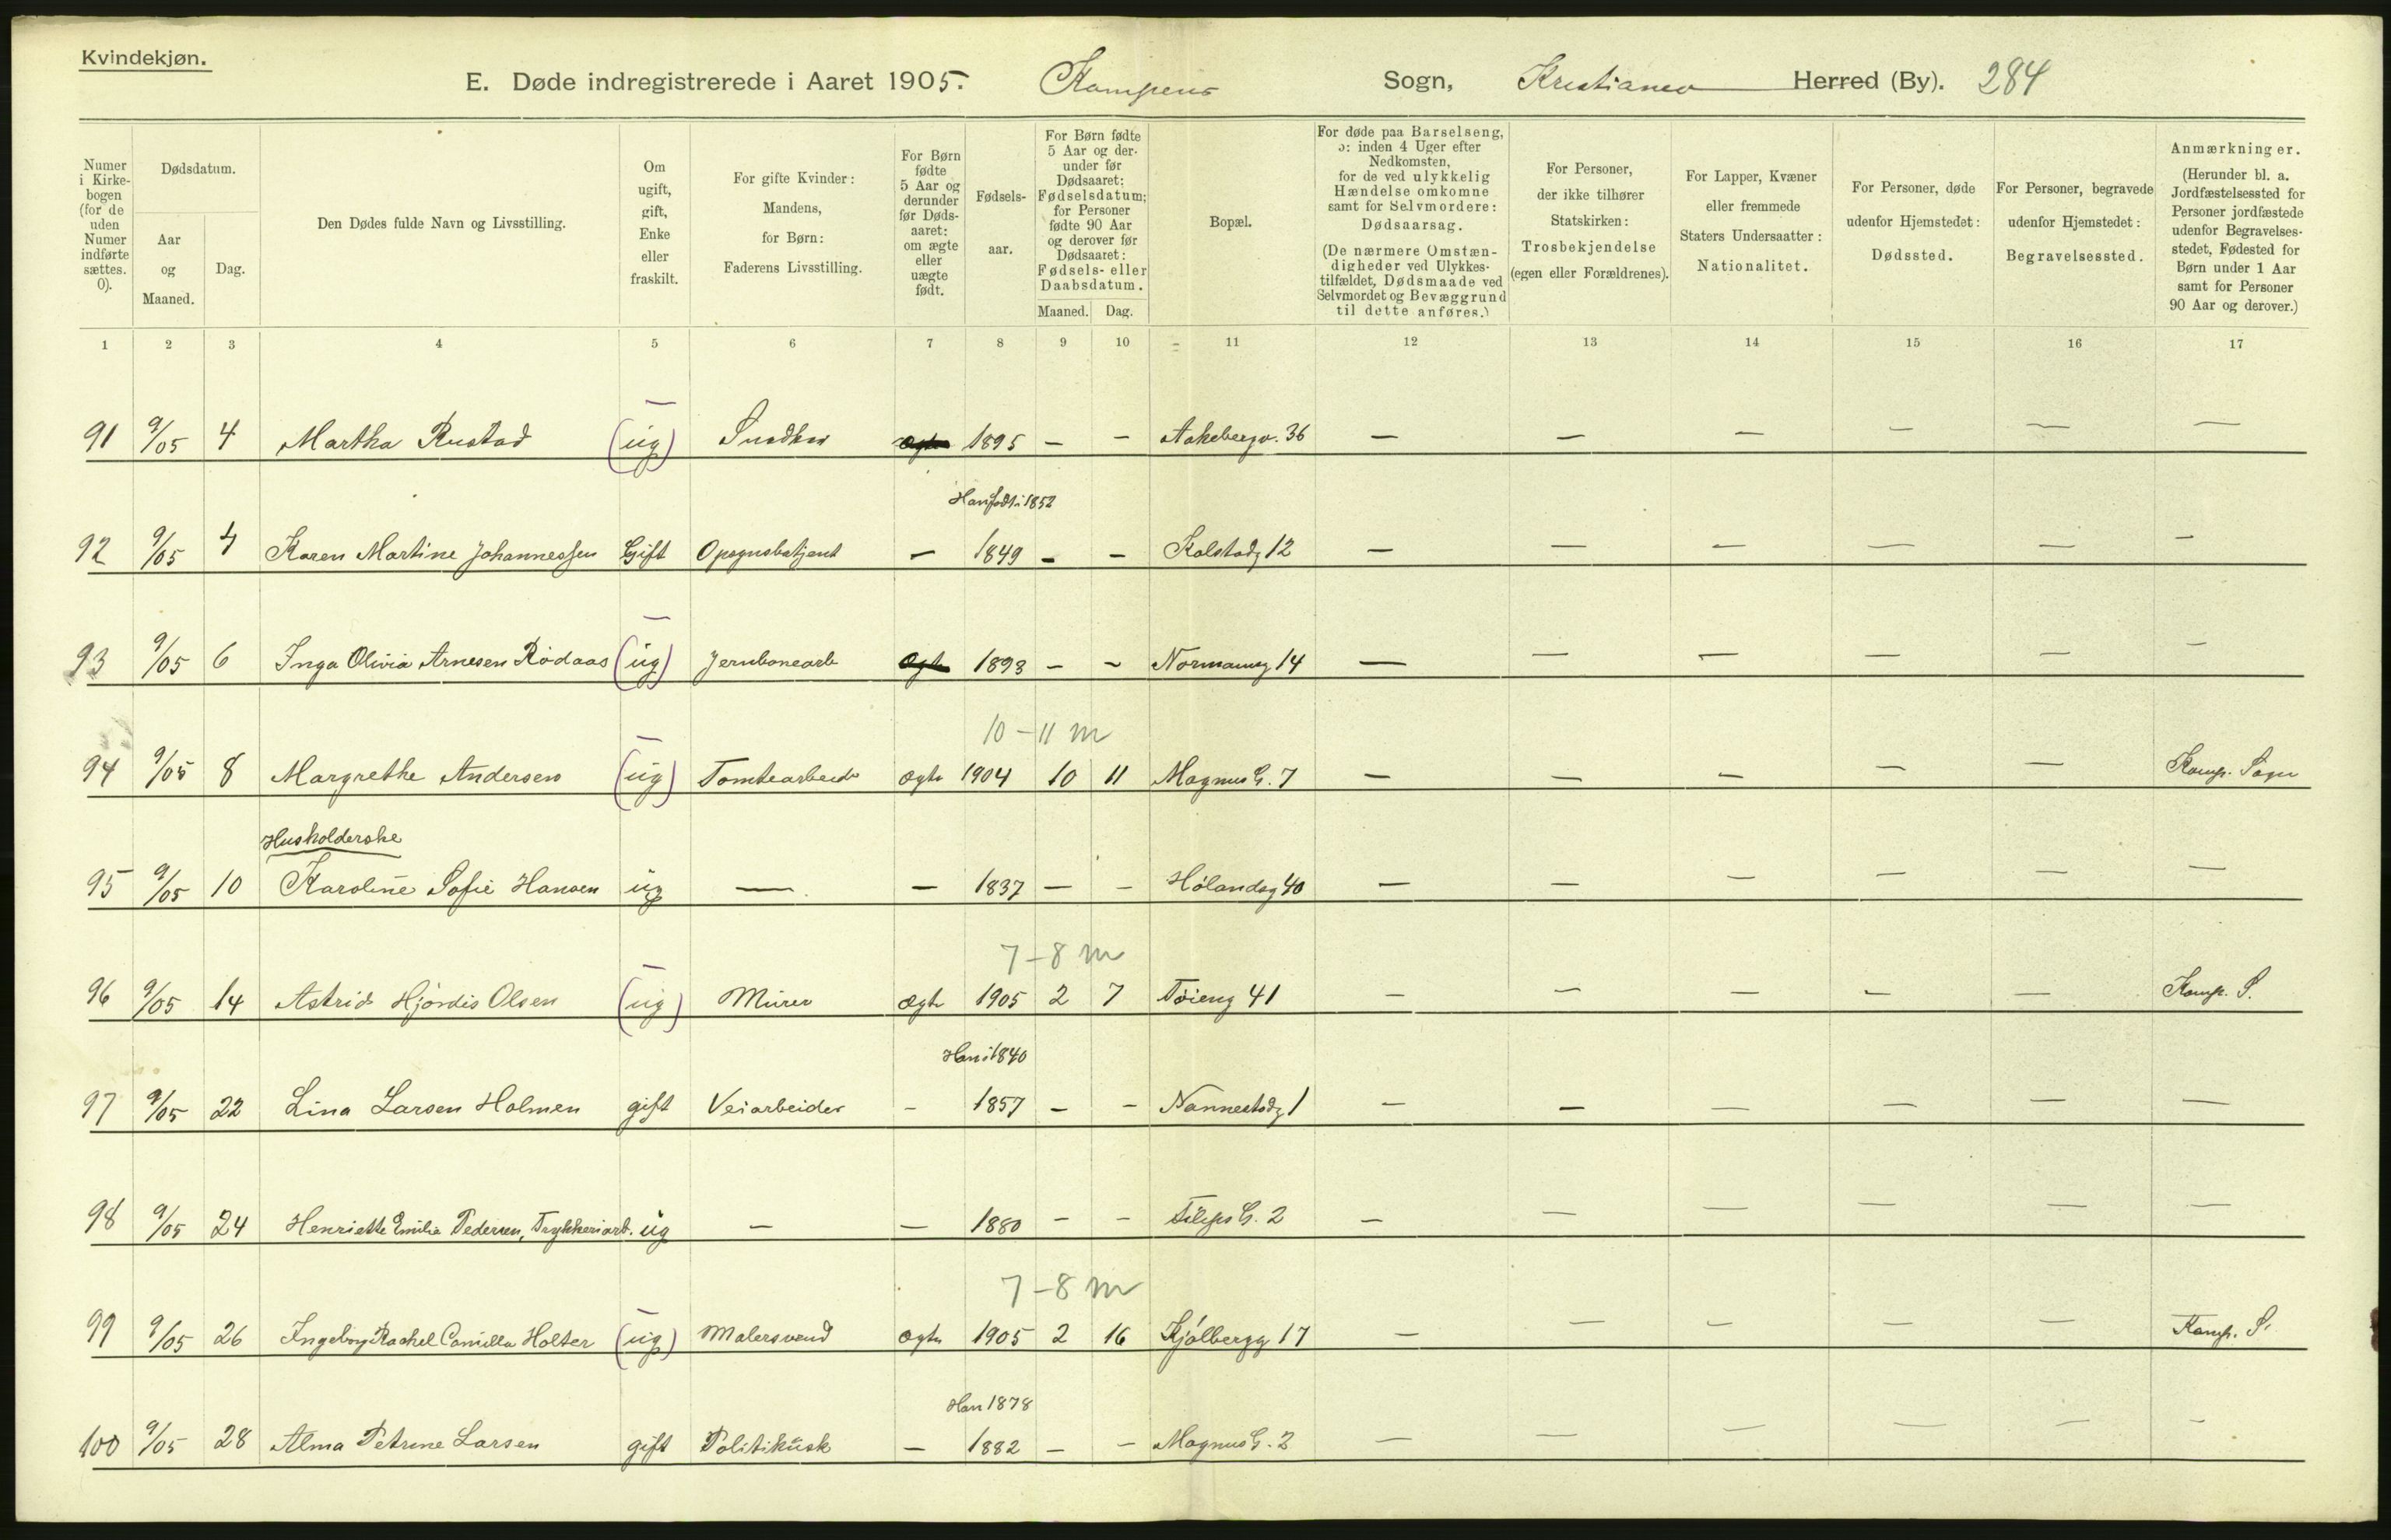 Kvindekjøn.
E. Døde indregistrerede i Aaret 1905. Kampens Sogn, Kristiania Herred (By). 284
Numer i Kirkebogen (for de uden Numer indførte sættes. 0).
Dødsdatum.
Aar og Maaned.
Dag.
Den Dødes fulde Navn og Livsstilling.
Om ugift, gift, Enke eller fraskilt.
For gifte Kvinder: Mandens, for Børn: Faderens Livsstilling.
For Børn fødte 5 Aar og derunder før Dødsaaret: om ægte eller uægte født.
Fødselsaar.
For Børn fødte 5 Aar og derunder før Dødsaaret: Fødselsdatum; for Personer fødte 90 Aar og derover før Dødsaaret: Fødsels- eller Daabsdatum.
Maaned. Dag.
Bopæl.
For døde paa Barselseng, ɔ: inden 4 Uger efter Nedkomsten, for de ved ulykkelig Hændelse omkomne samt for Selvmordere: Dødsaarsag.
(De nærmere Omstændigheder ved Ulykkestilfældet, Dødsmaade ved Selvmordet og Bevæggrund til dette anføres.)
For Personer, der ikke tilhører Statskirken: Trosbekjendelse (egen eller Forældrenes).
For Lapper, Kvæner eller fremmede Staters Undersaatter: Nationalitet.
For Personer, døde udenfor Hjemstedet: Dødssted.
For Personer, begravede udenfor Hjemstedet: Begravelsessted.
Anmærkninger.
(Herunder bl. a. Jordfæstelsessted for Personer jordfæstede udenfor Begravelsesstedet, Fødested for Børn under 1 Aar samt for Personer 90 Aar og derover.)
1 2 3 4 5 6 7 8 9 10 11 12 13 14 15 16 17
91 9/05 4 Martha Rustad (ug) Snedker ægte 1895 – – Aakebergv. 36 – – – – – –
Han født i 1852
92 9/05 4 Karen Martine Johannessen Gift Opsynsbetjent – 1849 – – Kolstadg 12 – – – – – –
93 9/05 6 Inga Olivia Arnesen Rødaas (ug) Jernbanearb ægte 1893 – – Normannsg 14 – – – – – –
10 – 11 m
94 9/05 8 Margrethe Andersen (ug) Tomtearbeider ægte 1904 10 11 Magnus G. 7 – – – – – Kamp. Sogn
Husholderske
95 9/05 10 Karoline Sofie Hansen ug – – 1837 – – Hølandsg 40 – – – – – –
7 – 8 m
96 9/05 14 Astrid Hjørdis Olsen (ug) Murer ægte 1905 2 7 Tøieng 41 – – – – – Kamp. S.
Han i 1840
97 9/05 22 Lina Larsen Holmen gift Veiarbeider – 1857 – – Nannestadg 1 – – – – – –
98 9/05 24 Henriette Emilie Pedersen, Trykkeriarb. ug – – 1880 – – Filips G. 2 – – – – – –
7 – 8 m
99 9/05 26 Ingeborg Rachel Camilla Holter (ug) Malersvend ægte 1905 2 16 Kjølbergg 17 – – – – – Kamp. S.
Han 1878
100 9/05 28 Alma Petrine Larsen gift Politikusk – 1882 – – Magnus G. 2 – – – – – –